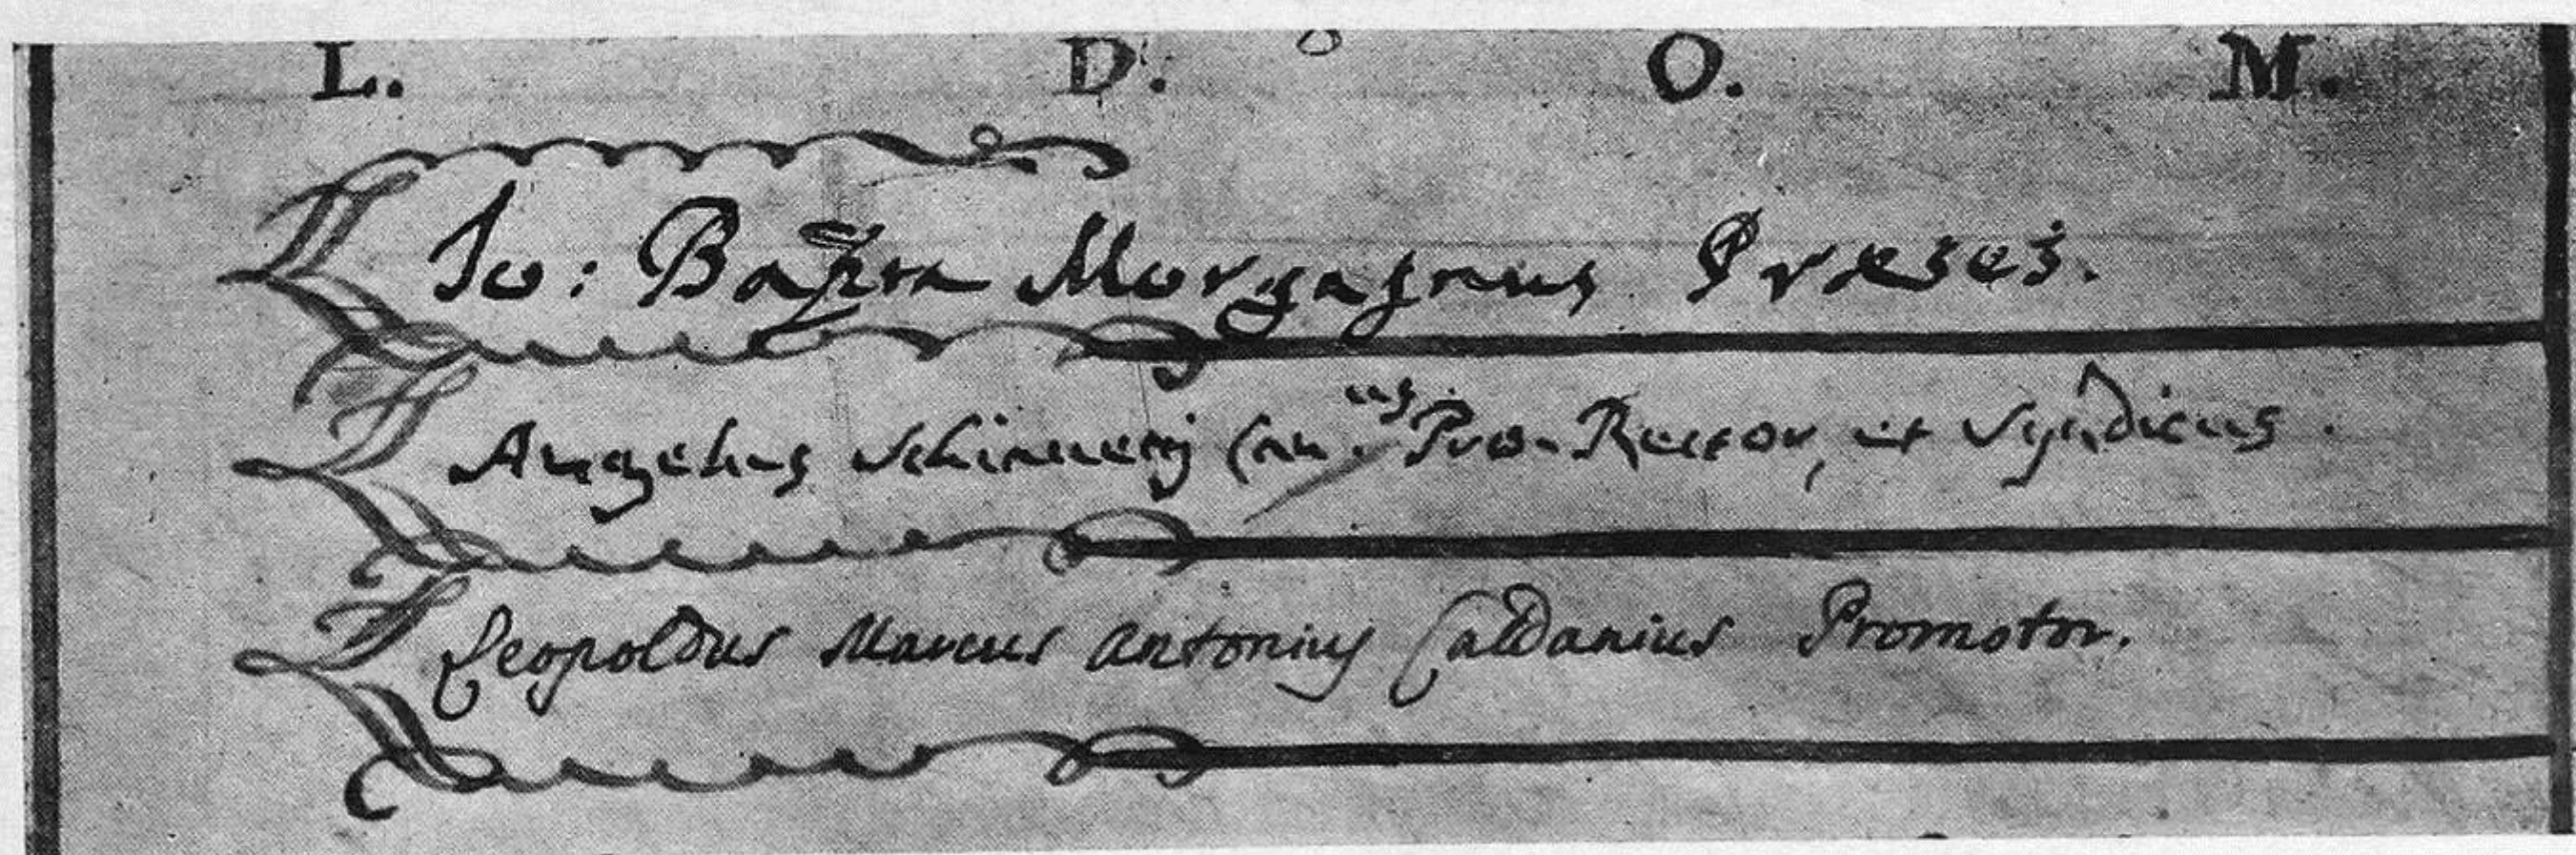 L. D. O. M.
Jo: Bapta Morgagnus Præses.
Angelus Schiavetj Can.us Pro-Rector, et Syndicus.
Leopoldus Marcus Antonius Caldanius Promotor.